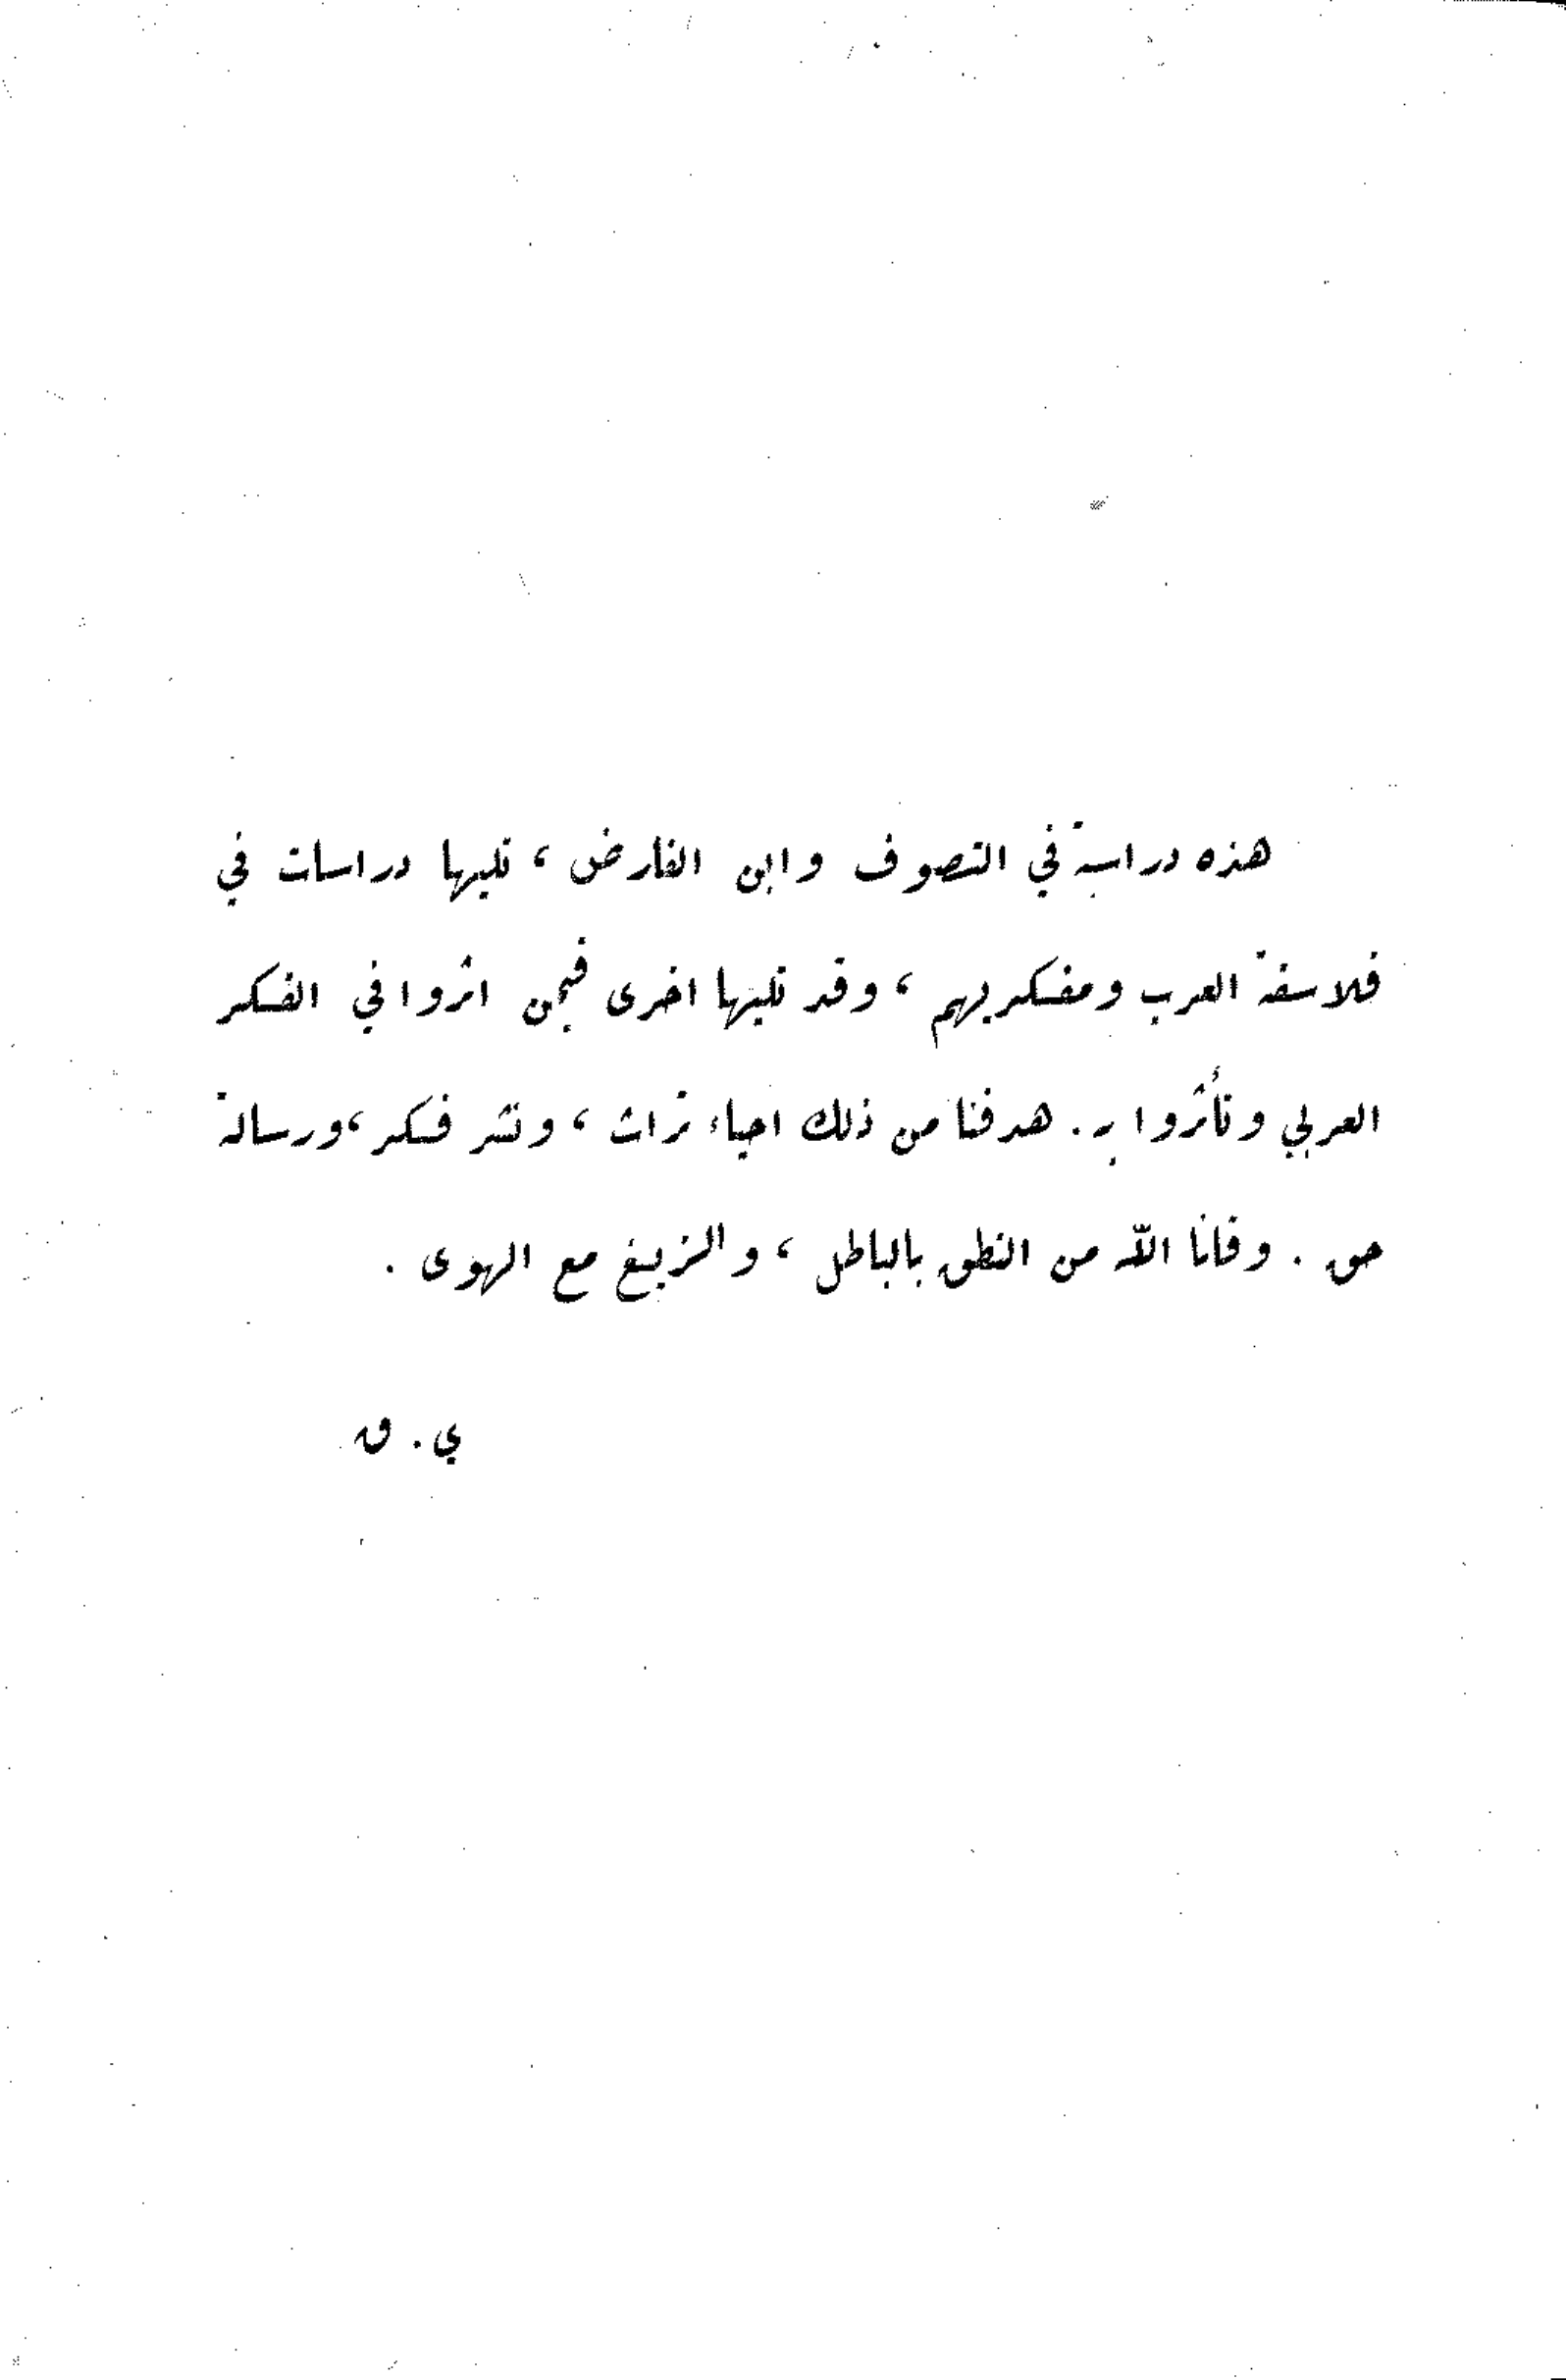 هذه دراسة في التصوف وابن الفارض ، تليها دراسات في
فلاسفة العرب ومفكريهم ، وقد تليها اخرى فيمن اثروا في الفكر
العربي وتأثروا به . هدفنا من ذلك احياء تراث ، ونشر فكر ، ورسالة
حق . وقانا الله من النطق بالباطل ، والزيغ مع الهوى .
ي . ق